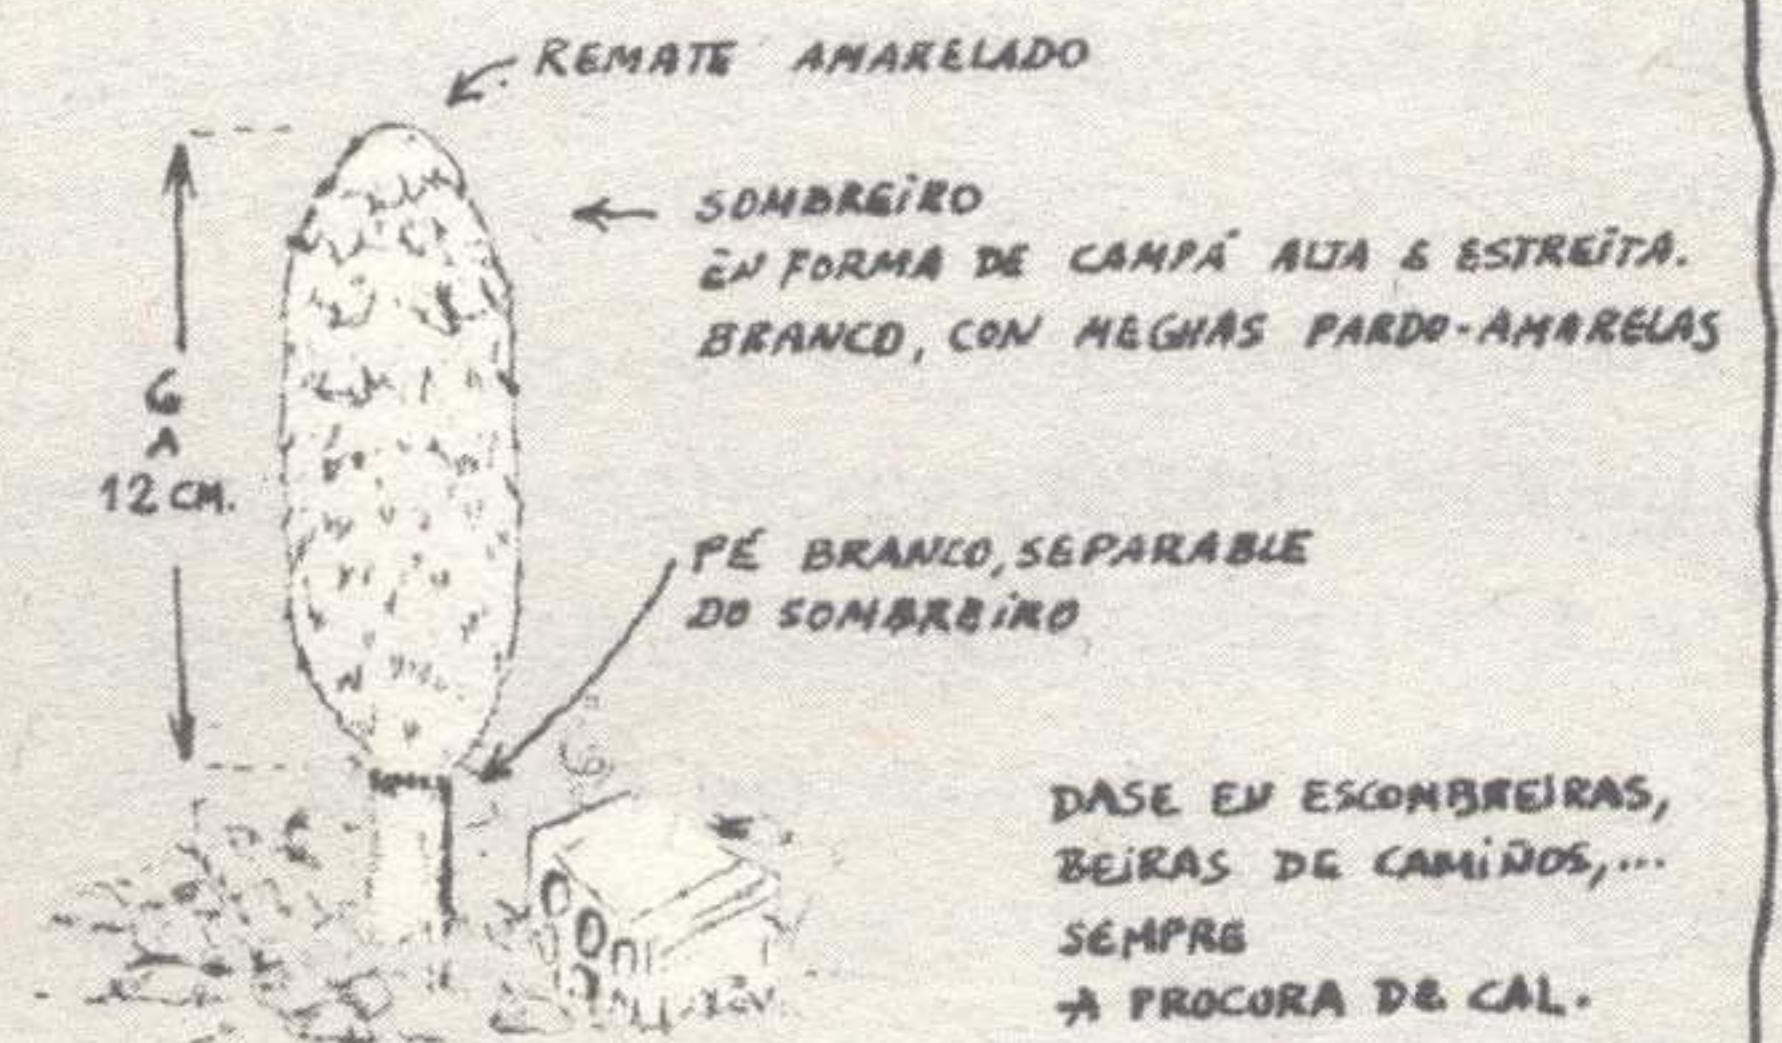 REMATE AMARELADO
SOMBREIRO
EN FORMA DE CAMPÁ ALTA E ESTREITA.
BRANCO, CON MEGHAS PARDO-AMARELAS
6
A
12 CM.
PÉ BRANCO, SEPARABLE
DO SOMBREIRO
DASE EN ESCOMBREIRAS,
BEIRAS DE CAMIÑOS,...
SEMPRE
A PROCURA DE CAL.